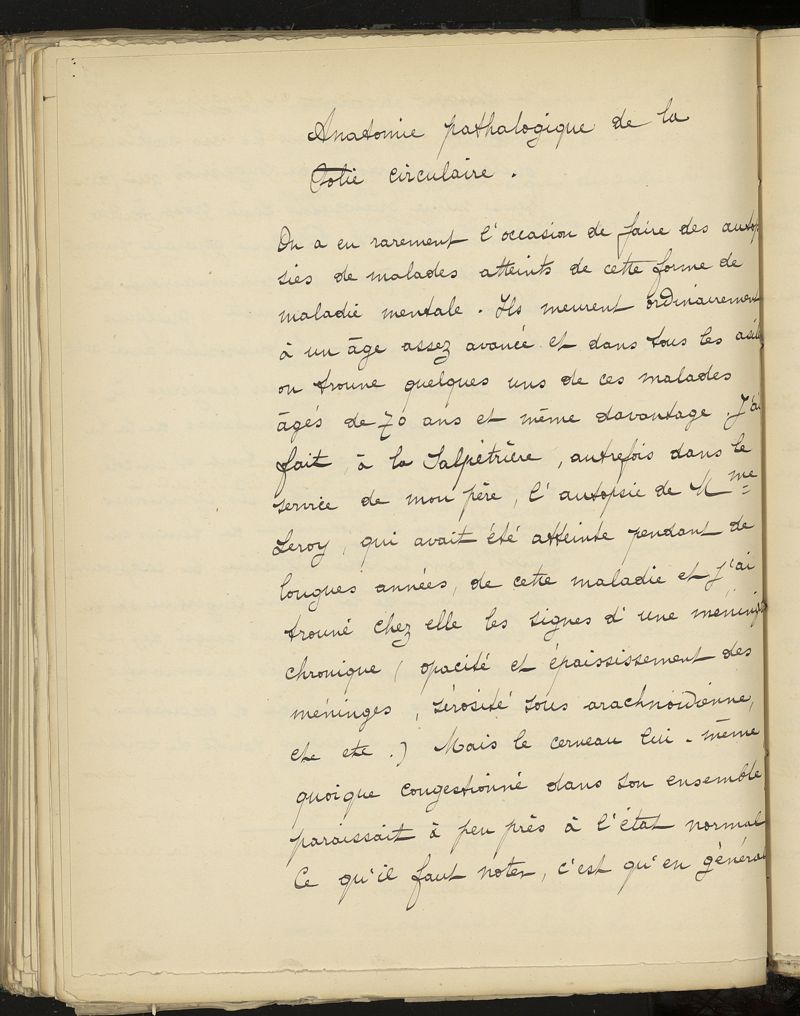 Anatomie pathologique de la
Folie circulaire.
On a eu rarement l'occasion de faire des autop
sies de malades atteints de cette forme de
maladie mentale. Ils meurent ordinairement
à un âge assez avancé et dans tous les asil
on trouve quelques uns de ces malades
âgés de 70 ans et même davantage. J'ai
fait, à la Salpêtrière, autrefois dans le
service de mon père, l'autopsie de Mme
Leroy, qui avait été atteinte pendant de
longues années, de cette maladie et j'ai
trouvé chez elle les signes d'une méningi
chronique (opacité et épaississement des
méninges, sérosité sous arachnoïdienne,
etc etc.) Mais le cerveau lui-même
quoique congestionné dans son ensemble
paraissait à peu près à l'état normal
Ce qu'il faut noter, c'est qu'en généra